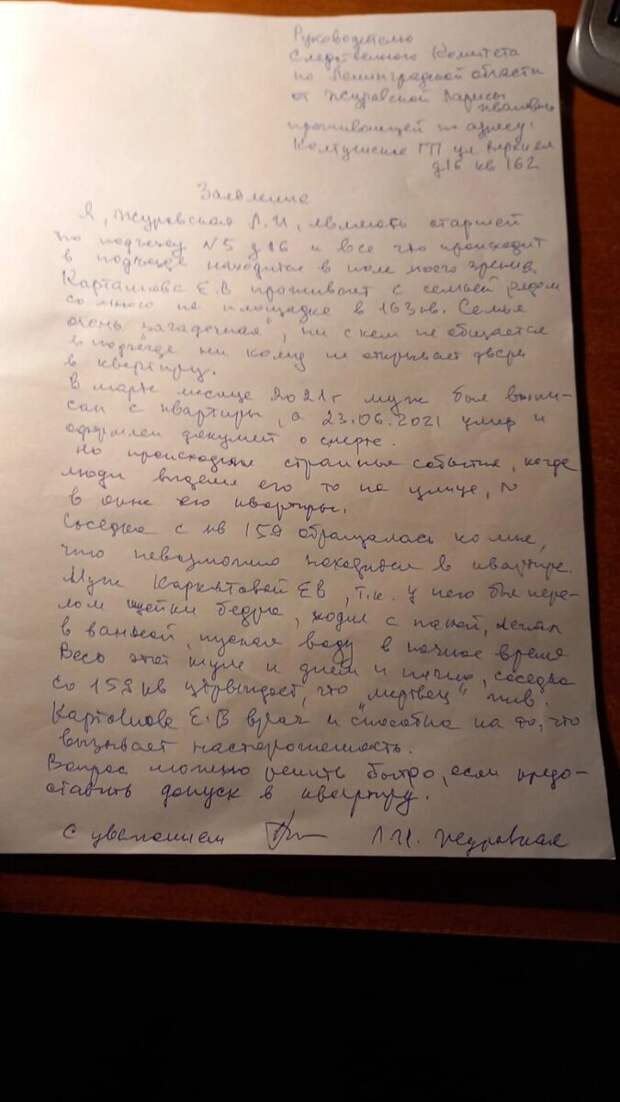 Руководителю
Следственного Комитета
по Ленинградской области
от Журавской Ларисы
Ивановны
проживающей по адресу:
Колтушское ГП ул
д16 кв 162
Заявление
Я, Журавская Л.И, являюсь старшей
по подъезду N5 д 16 и все что происходит
в подъезде находится в поле моего зрения.
Карташова Е.В проживает с семьей рядом
со мною на площадке в 163 кв. Семья
очень "загадочная", ни с кем не общается
в подъезде ни кому не открывает дверь
в квартиру.
В марте месяце 2021г муж был выпи-
сан с квартиры, а 23.06.2021 умер и
оформлен документ о смерте.
Но происходили странные события, когда
люди видели его то на улице,
в окне его квартиры.
Соседка с кв 159 обращалась ко мне,
что невозможно находится в квартире.
Муж Е В, т.к. у него был пере-
лом шейки бедра, ходил с палкой,
в ванной, пускал воду в ночное время
Весь этот шум и днем и ночью, соседка
со 159 кв утверждает, что "мертвец" жив.
Карташова Е.В врач и "способна на то, что
вызывает настороженность.
Вопрос можно решить быстро, если предо-
ставить допуск в квартиру.
С уважением Л.И. Журавская